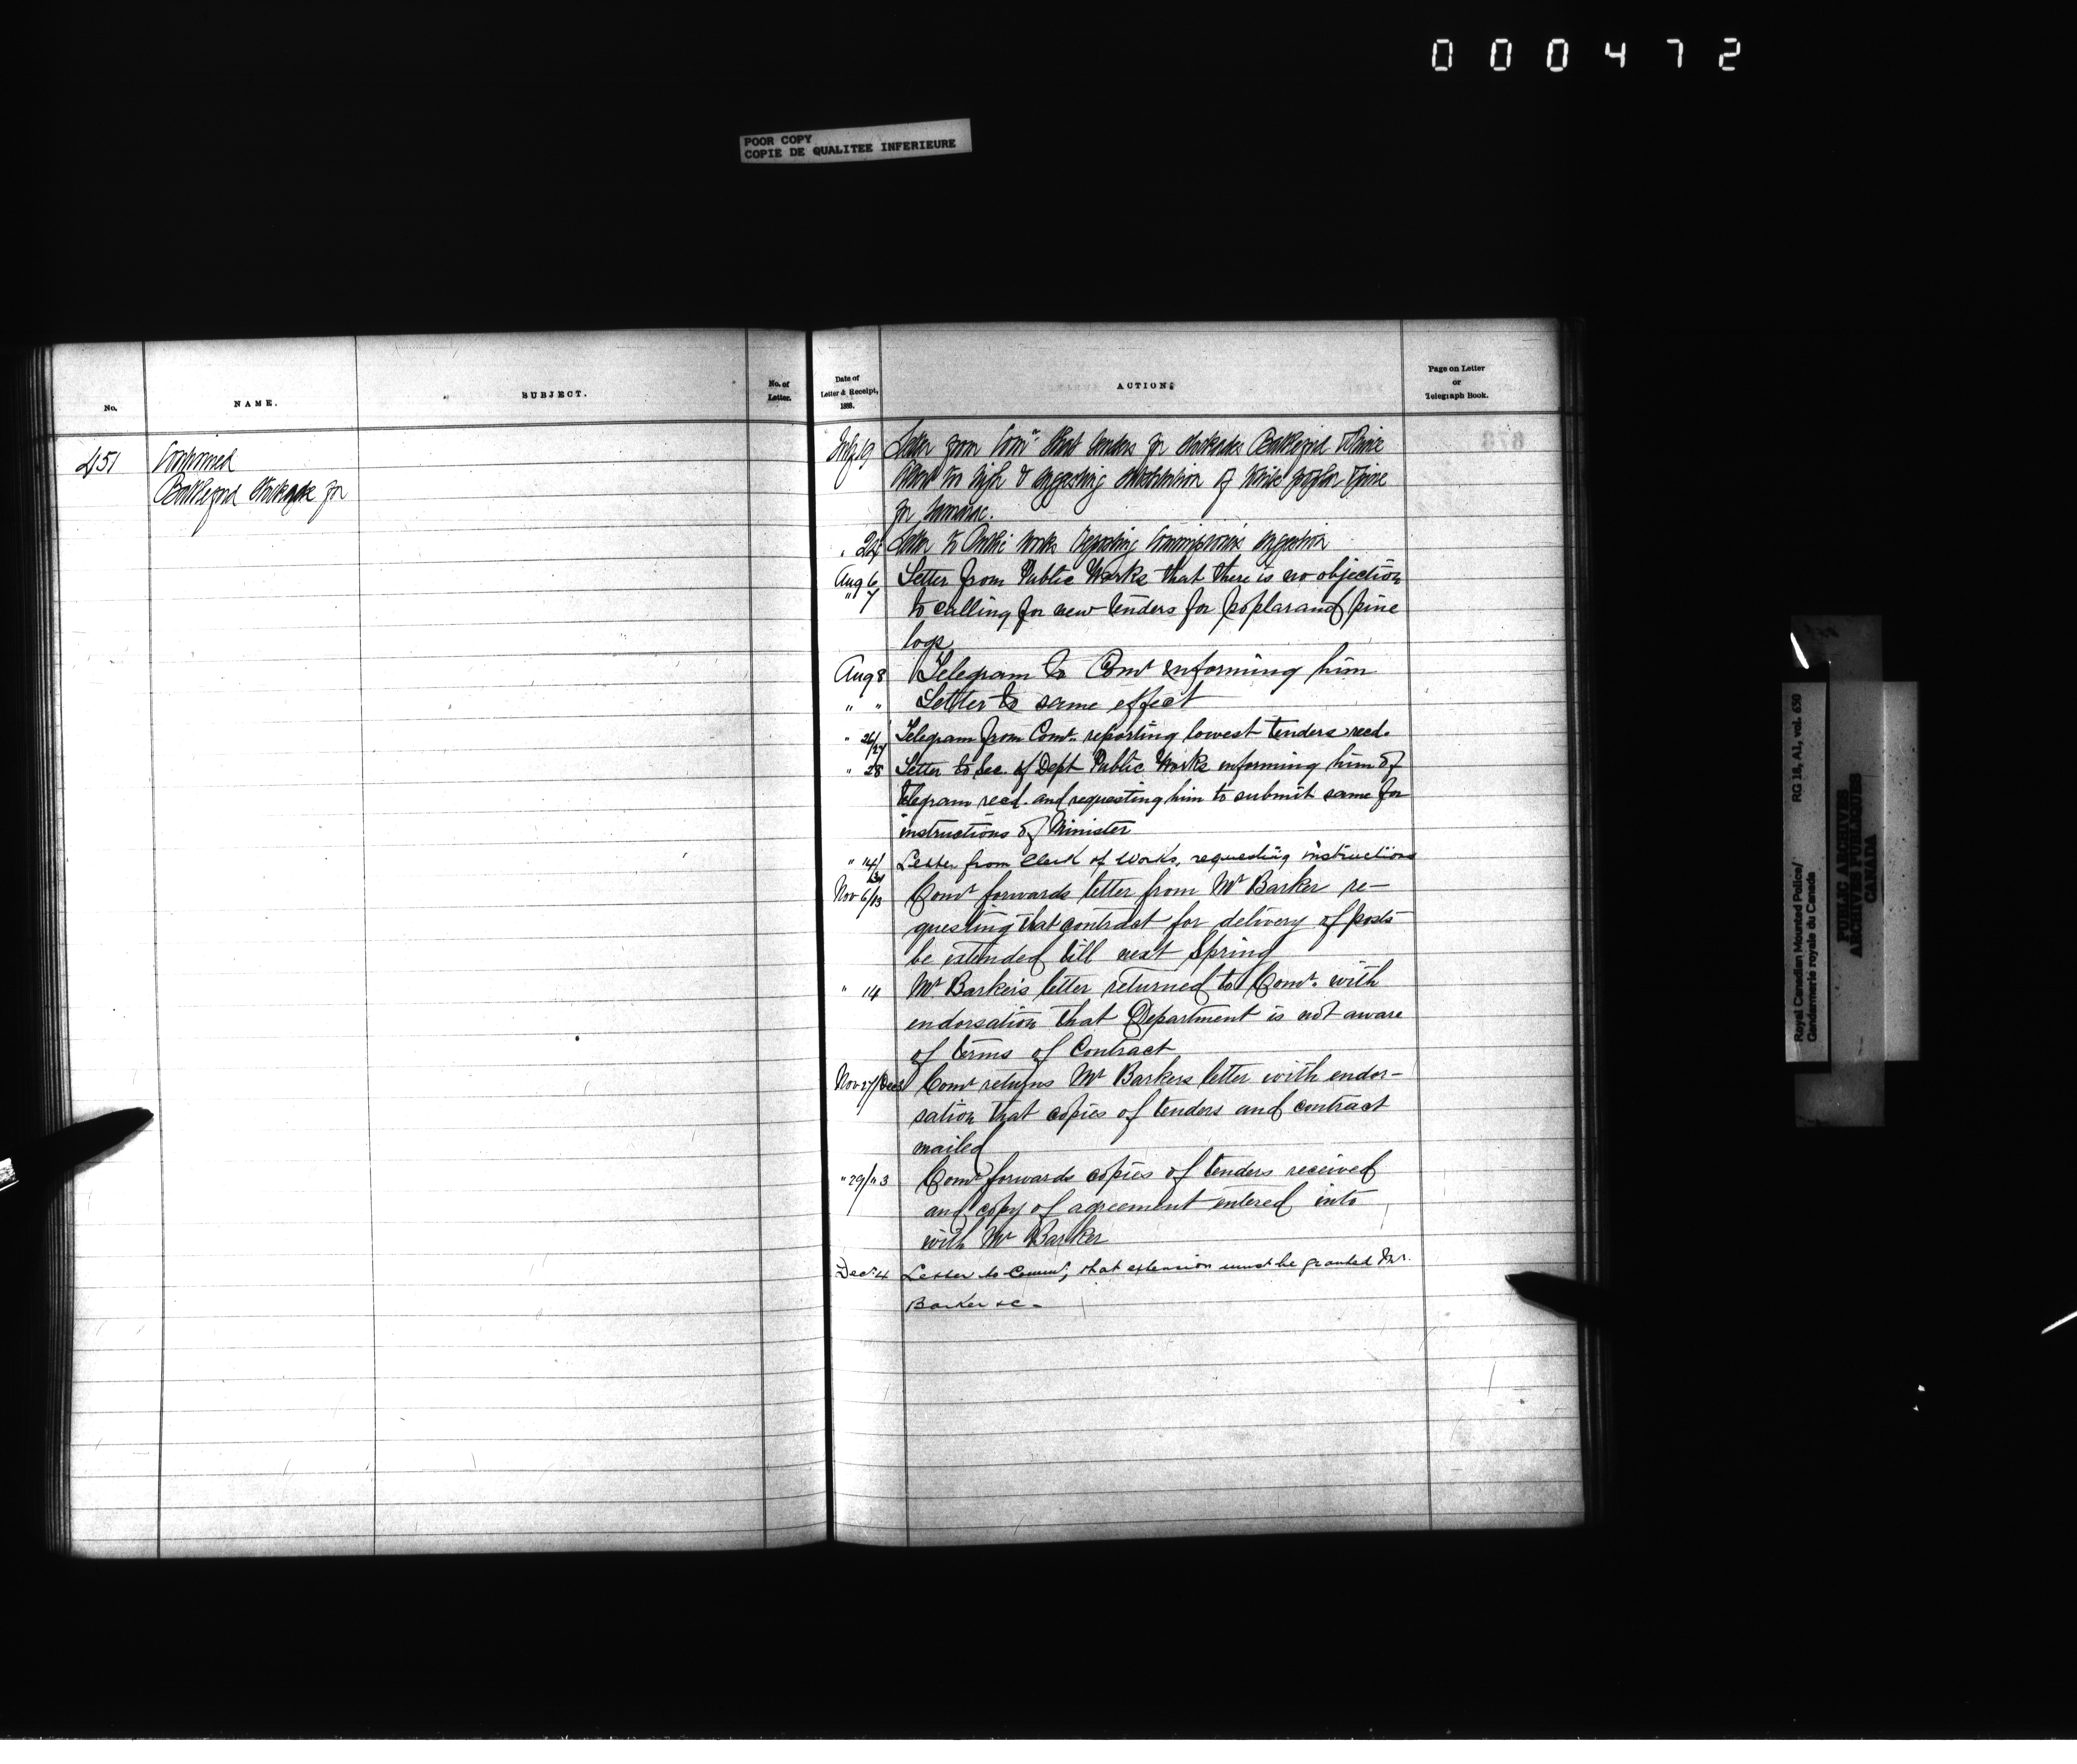 000472
POOR COPY
COPIE DE QUALITEE INFERIEURE
No.
NAME.
SUBJECT.
No. of
Letter.
Date of
Letter & Receipt,
188
ACTION.
Page on Letter
or
Telegraph Book.
451
Continued
Battleford Stockade for
July 19 Letter from Comr that tenders for stockades Battleford & Prince
Albert too high & suggesting substitution of white poplar & pine
for tamarac.
" 24 Letter to Public Works reporting Commissioner's suggestion
Aug 6 Letter from Public Works that there is no objection
" 7 to calling for new tenders for poplar and pine
logs
Aug 8 Telegram to Comr informing him
" " Letter to same effect
" 26/27 Telegram from Comr. reporting lowest tenders recd.
" 28 Letter to Sec. of Dept Public Works informing him of
telegram recd. and requesting him to submit same for
instructions of Minister
" 14/ Letter from Clerk of Works, requesting instructions
Nov 6/13 Comr forwards letter from Mr Barker re-
questing that contract for delivery of posts
be extended till next Spring
" 14 Mr Barkers letter returned to Comr. with
endorsation that Department is not aware
of terms of Contract
Nov 27/Dec 3 Comr returns Mr Barkers letter with endor-
sation that copies of tenders and contract
mailed
" 29/" 3 Comr forwards copies of tenders received
and copy of agreement entered into
with Mr Barker
Dec. 4 Letter to Commr, that extension must be granted Mr.
Barker &c.
Royal Canadian Mounted Police/
Gendarmerie royale du Canada
RG 18, A1, vol. 630
PUBLIC ARCHIVES
ARCHIVES PUBLIQUES
CANADA